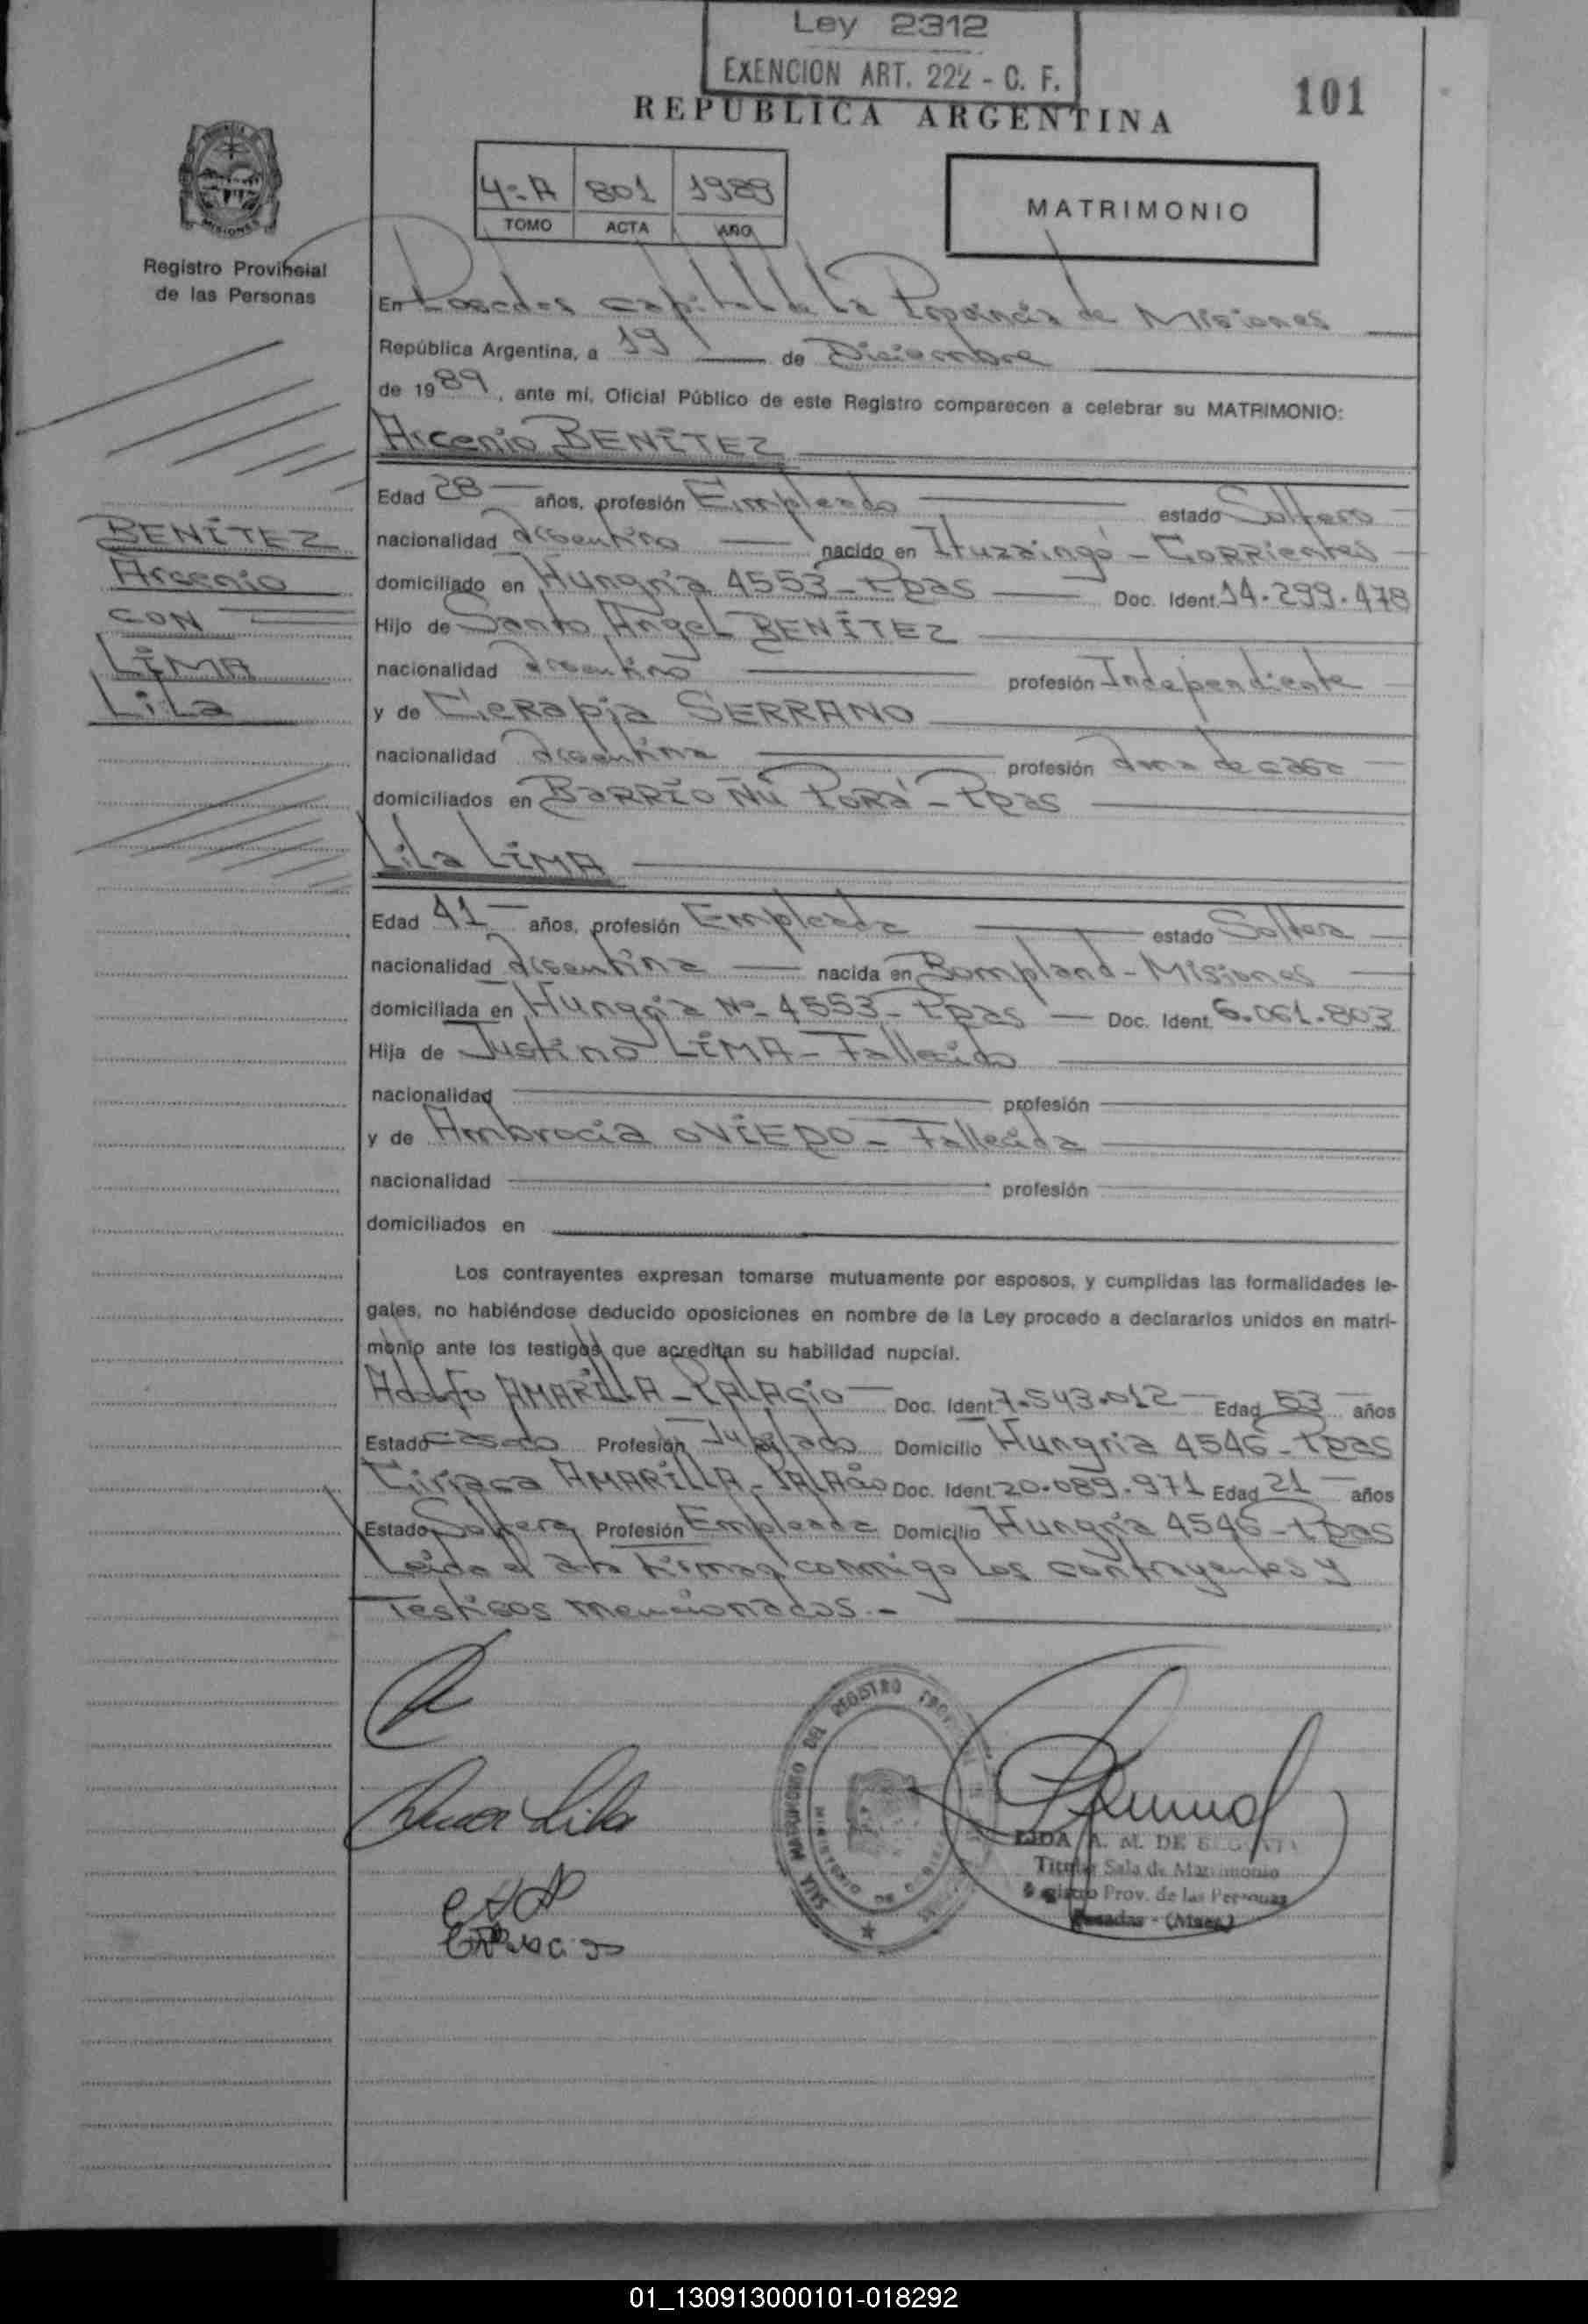 Ley 2312
EXENCION ART. 222 - C. F.
101
REPUBLICA ARGENTINA
4º A 801 1989
TOMO ACTA AÑO
MATRIMONIO
Registro Provincial
de las Personas
En Posadas capital de la Provincia de Misiones
República Argentina, a 19 de Diciembre
de 1989, ante mí, Oficial Público de este Registro comparecen a celebrar su MATRIMONIO:
Arcenio BENÍTEZ
Edad 28 años, profesión Empleado estado Soltero
nacionalidad argentino nacido en Ituzaingó - Corrientes
domiciliado en Hungría 4553 - Ppas Doc. Ident. 14.299.478
Hijo de Santo Angel BENÍTEZ
nacionalidad argentino profesión Independiente
y de Cierapia SERRANO
nacionalidad argentina profesión ama de casa
domiciliados en Barrio Ñú Porá - Ppas
BENÍTEZ
Arsenio
CON
LIMA
Lila
Lila LIMA
Edad 41 años, profesión Empleada estado Soltera
nacionalidad argentina nacida en Bompland - Misiones
domiciliada en Hungría Nº 4553 - Ppas Doc. Ident. 6.061.803
Hija de Justino LIMA - Fallecido
nacionalidad profesión
y de Ambrocia OVIEDO - Fallecida
nacionalidad profesión
domiciliados en
Los contrayentes expresan tomarse mutuamente por esposos, y cumplidas las formalidades le-
gales, no habiéndose deducido oposiciones en nombre de la Ley procedo a declararlos unidos en matri-
monio ante los testigos que acreditan su habilidad nupcial.
Adolfo AMARILLA - PALACIO Doc. Ident. 7.543.012 Edad 53 años
Estado casado Profesión Jubilado Domicilio Hungría 4546 - Ppas
Ciriaca AMARILLA - PALACIO Doc. Ident. 20.089.971 Edad 21 años
Estado Soltera Profesión Empleada Domicilio Hungría 4546 - Ppas
Leída el acta firman conmigo los contrayentes y
Testigos mencionados.-
Lima Lila
SALA MATRIMONIO DEL REGISTRO
LIDA A. M. DE
Titular Sala de Matrimonio
Registro Prov. de las Personas
Posadas - (Mnes.)
01_130913000101-018292